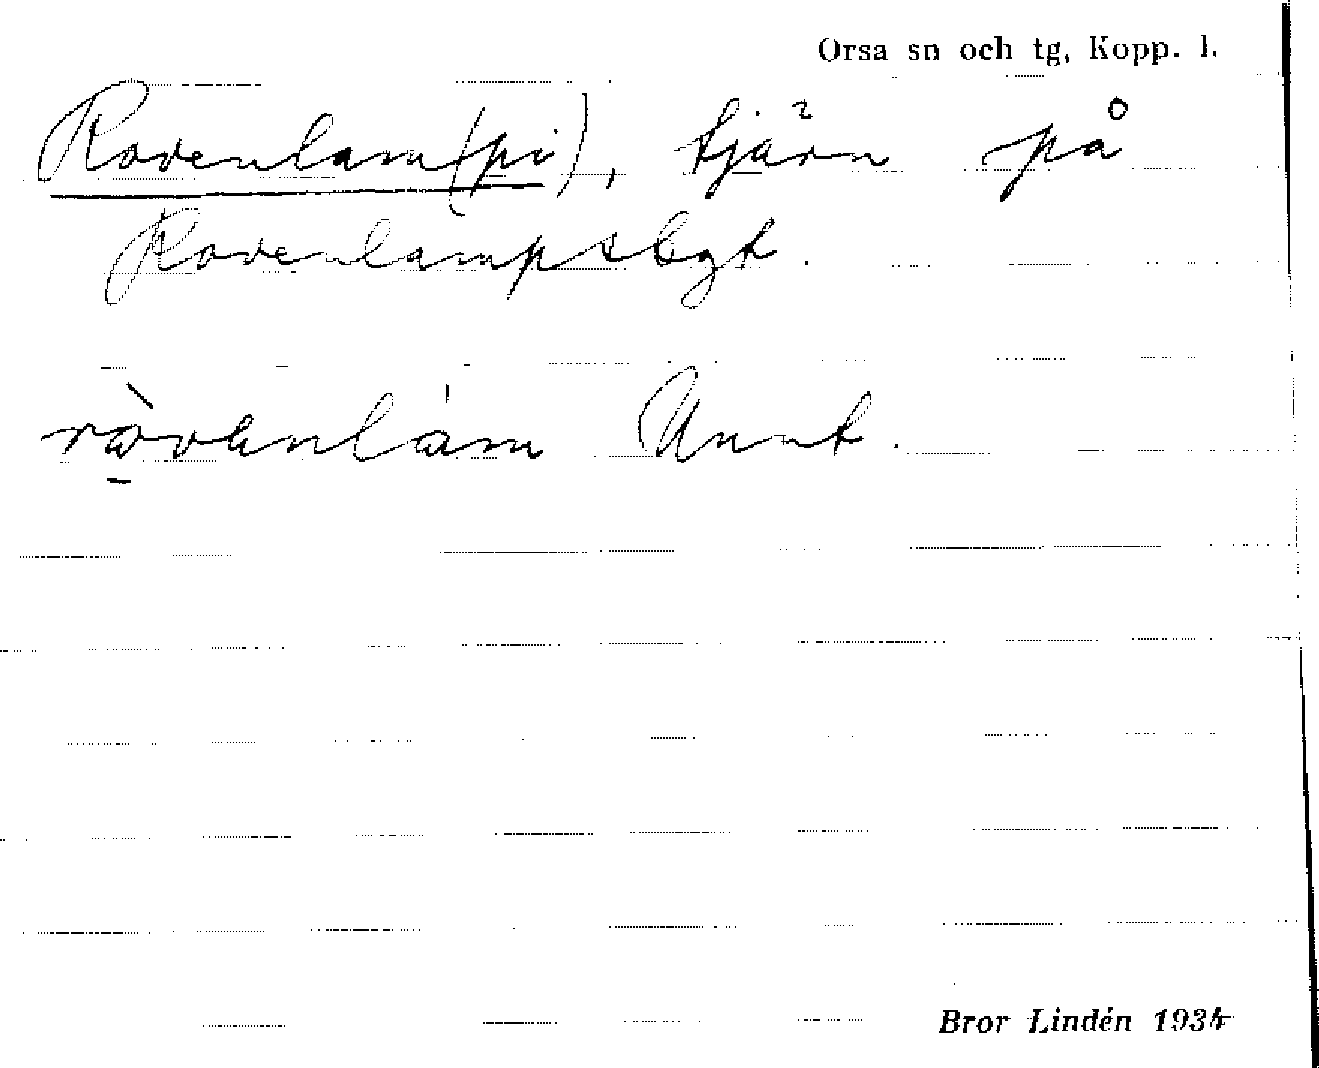 Orsa sn och tg, Kopp. l.
Rovenlam(pi), tjärn på
Rovenlampsbgt.
ròvenlàm Unnt.
Bror Lindén 1934